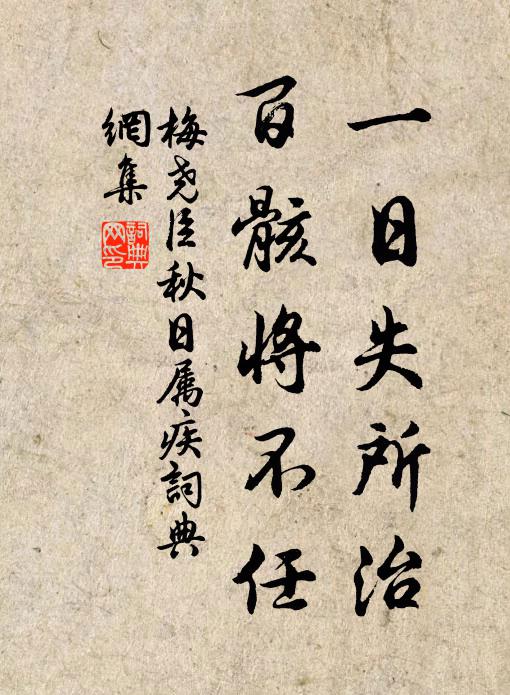 一日失所治
百骸将不任
梅尧臣秋日属疾詞典
網集
詞典
网印